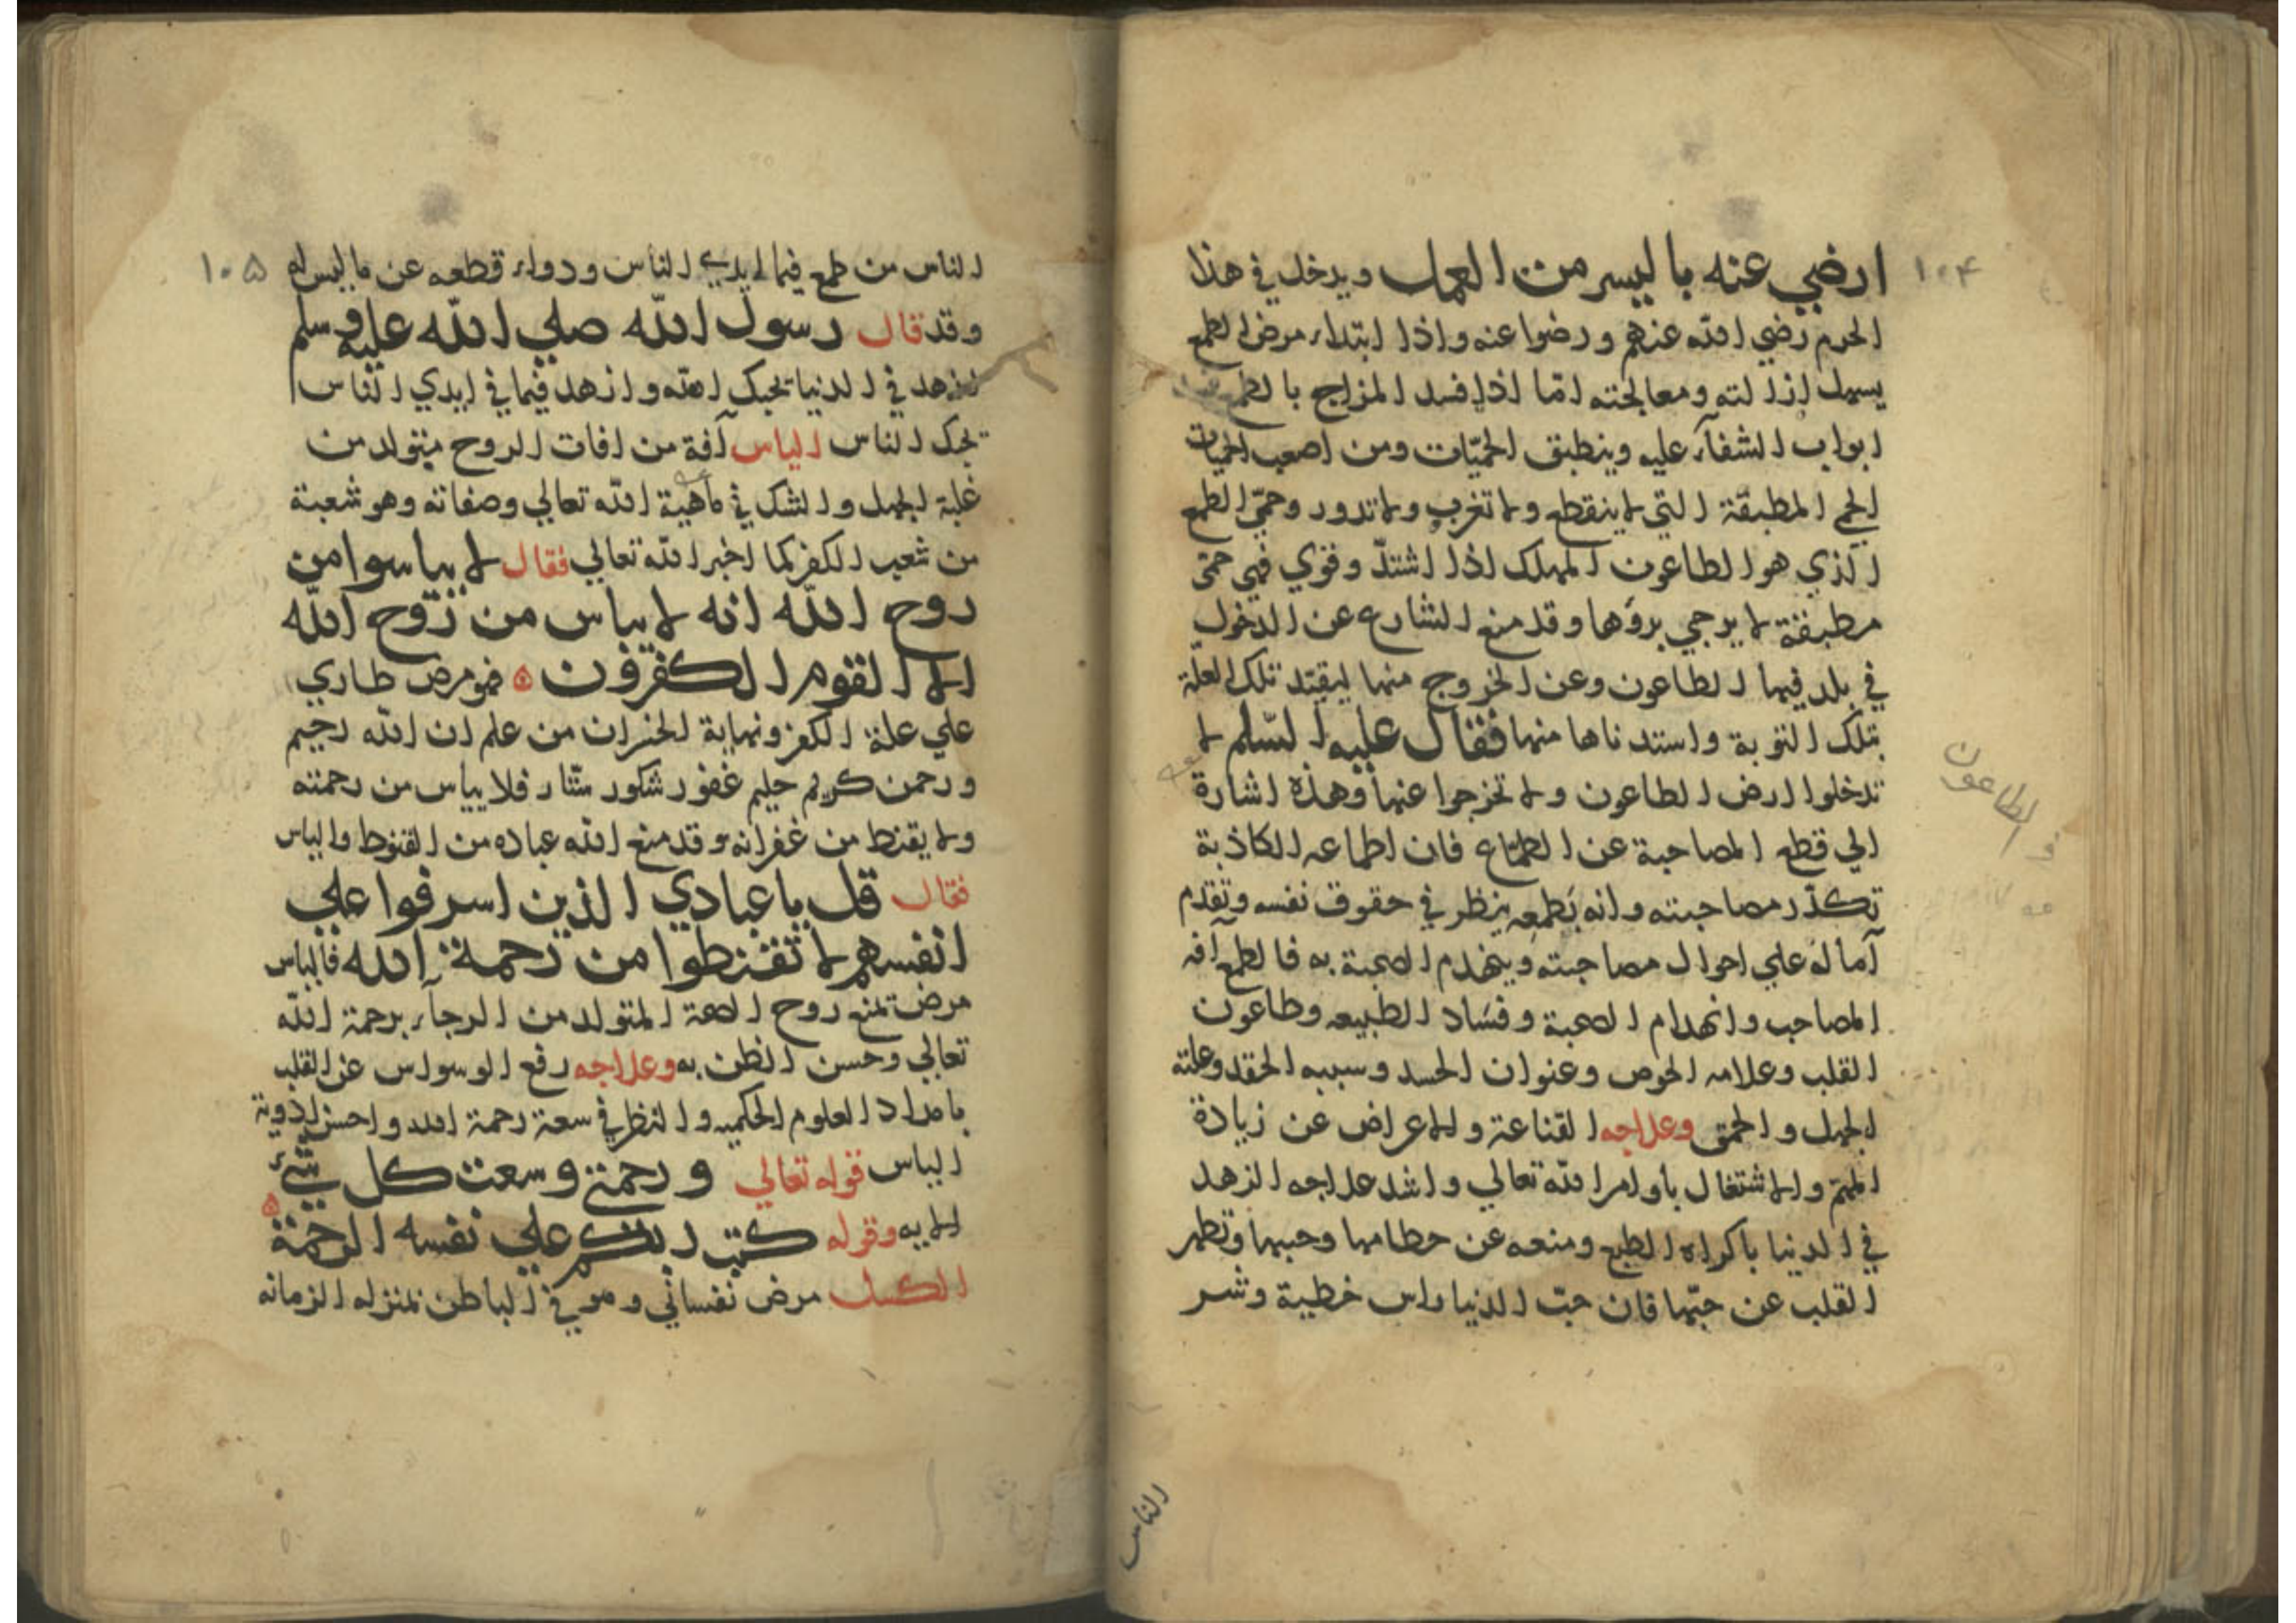 ١٠٤
ارضي عنه باليسر من العمل ويدخل في هذا
الحرم رضي الله عنهم ورضوا عنه واذا ابتداء مرض الطمع
يسهل ازالته ومعالجته امّا اذا فسد المزاج بالطمع
ابواب الشفآء عليه وينطبق الحمّيات ومن اصعب الحميات
الحمي المطبقة التي لا ينقطع ولا تغرب ولا تدور وحمّي الطمع
الذي هو الطاعون المهلك اذا اشتدّ وقوي فهي حمّي
مطبقة لا يرجي بروُها وقد منع الشارع عن الدخول
في بلد فيها الطاعون وعن الخروج منها ليقيّد تلك العلّة
بتلك التوبة واستدناها منها فقال عليه السّلم لا
تدخلوا ارض الطاعون ولا تخرجوا عنها وهذه اشارة
الي قطع المصاحبة عن الطمّاع فان اطماعه الكاذبة
تكدّر مصاحبته وانه بطمعه ينظر في حقوق نفسه وتقدم
آماله علي احوال مصاحبته وينهدم الصحبة به فالطمع آفه
المصاحب وانهدام الصحبة وفساد الطبيعه وطاعون
القلب وعلامه الحرص وعنوان الحسد وسببه الحقد وعلته
الجهل والحمق وعلاجه القناعة والاعراض عن زيادة
المهم والاشتغال باوامر الله تعالي واشد علاجه الزهد
في الدنيا باكراه الطبع ومنعه عن حطامها وحبها وتطهر
القلب عن حبّها فان حبّ الدنيا راس خطية وشر
الطاعون
الناس
١٠٥
الناس من طمع فيما ايدي الناس ودواء قطعه عن ما ليس له
وقد قال رسول الله صلي الله عليه وسلم
ازهد في الدنيا يحبك الله وازهد فيما في ايدي الناس
يحبك الناس الياس آفة من افات الروح ميتولد من
غلبة الجهل والشك في ماهية الله تعالي وصفاته وهو شعبة
من شعب الكفر كما اخبر الله تعالي فقال لا يياسوا من
روح الله انه لا يياس من رّوح الله
الا القوم الكفرون فهو مرض طاري
علي علة الكفر ونهاية الخسران من علم ان الله رحيم
ورحمن كريم حليم غفور شكور ستّار فلا يياس من رحمته
ولا يقنط من غفرانه وقد منع الله عباده من القنوط والياس
فقال قل يا عبادي الذين اسرفوا علي
انفسهم لا تقنطوا من رحمة الله فالياس
مرض تمنع روح الصحة المتولد من الرجآء برحمة الله
تعالي وحسن الظن به وعلاجه رفع الوسواس عن القلب
بامداد العلوم الحكميه والنظر في سعة رحمة الله واحسن ادوية
الياس قوله تعالي ورحمتي وسعت كل شيء
الايه وقوله كتب ربكم علي نفسه الرحمة
الكسل مرض نفساني وهو في الباطن بمنزله الزمانه